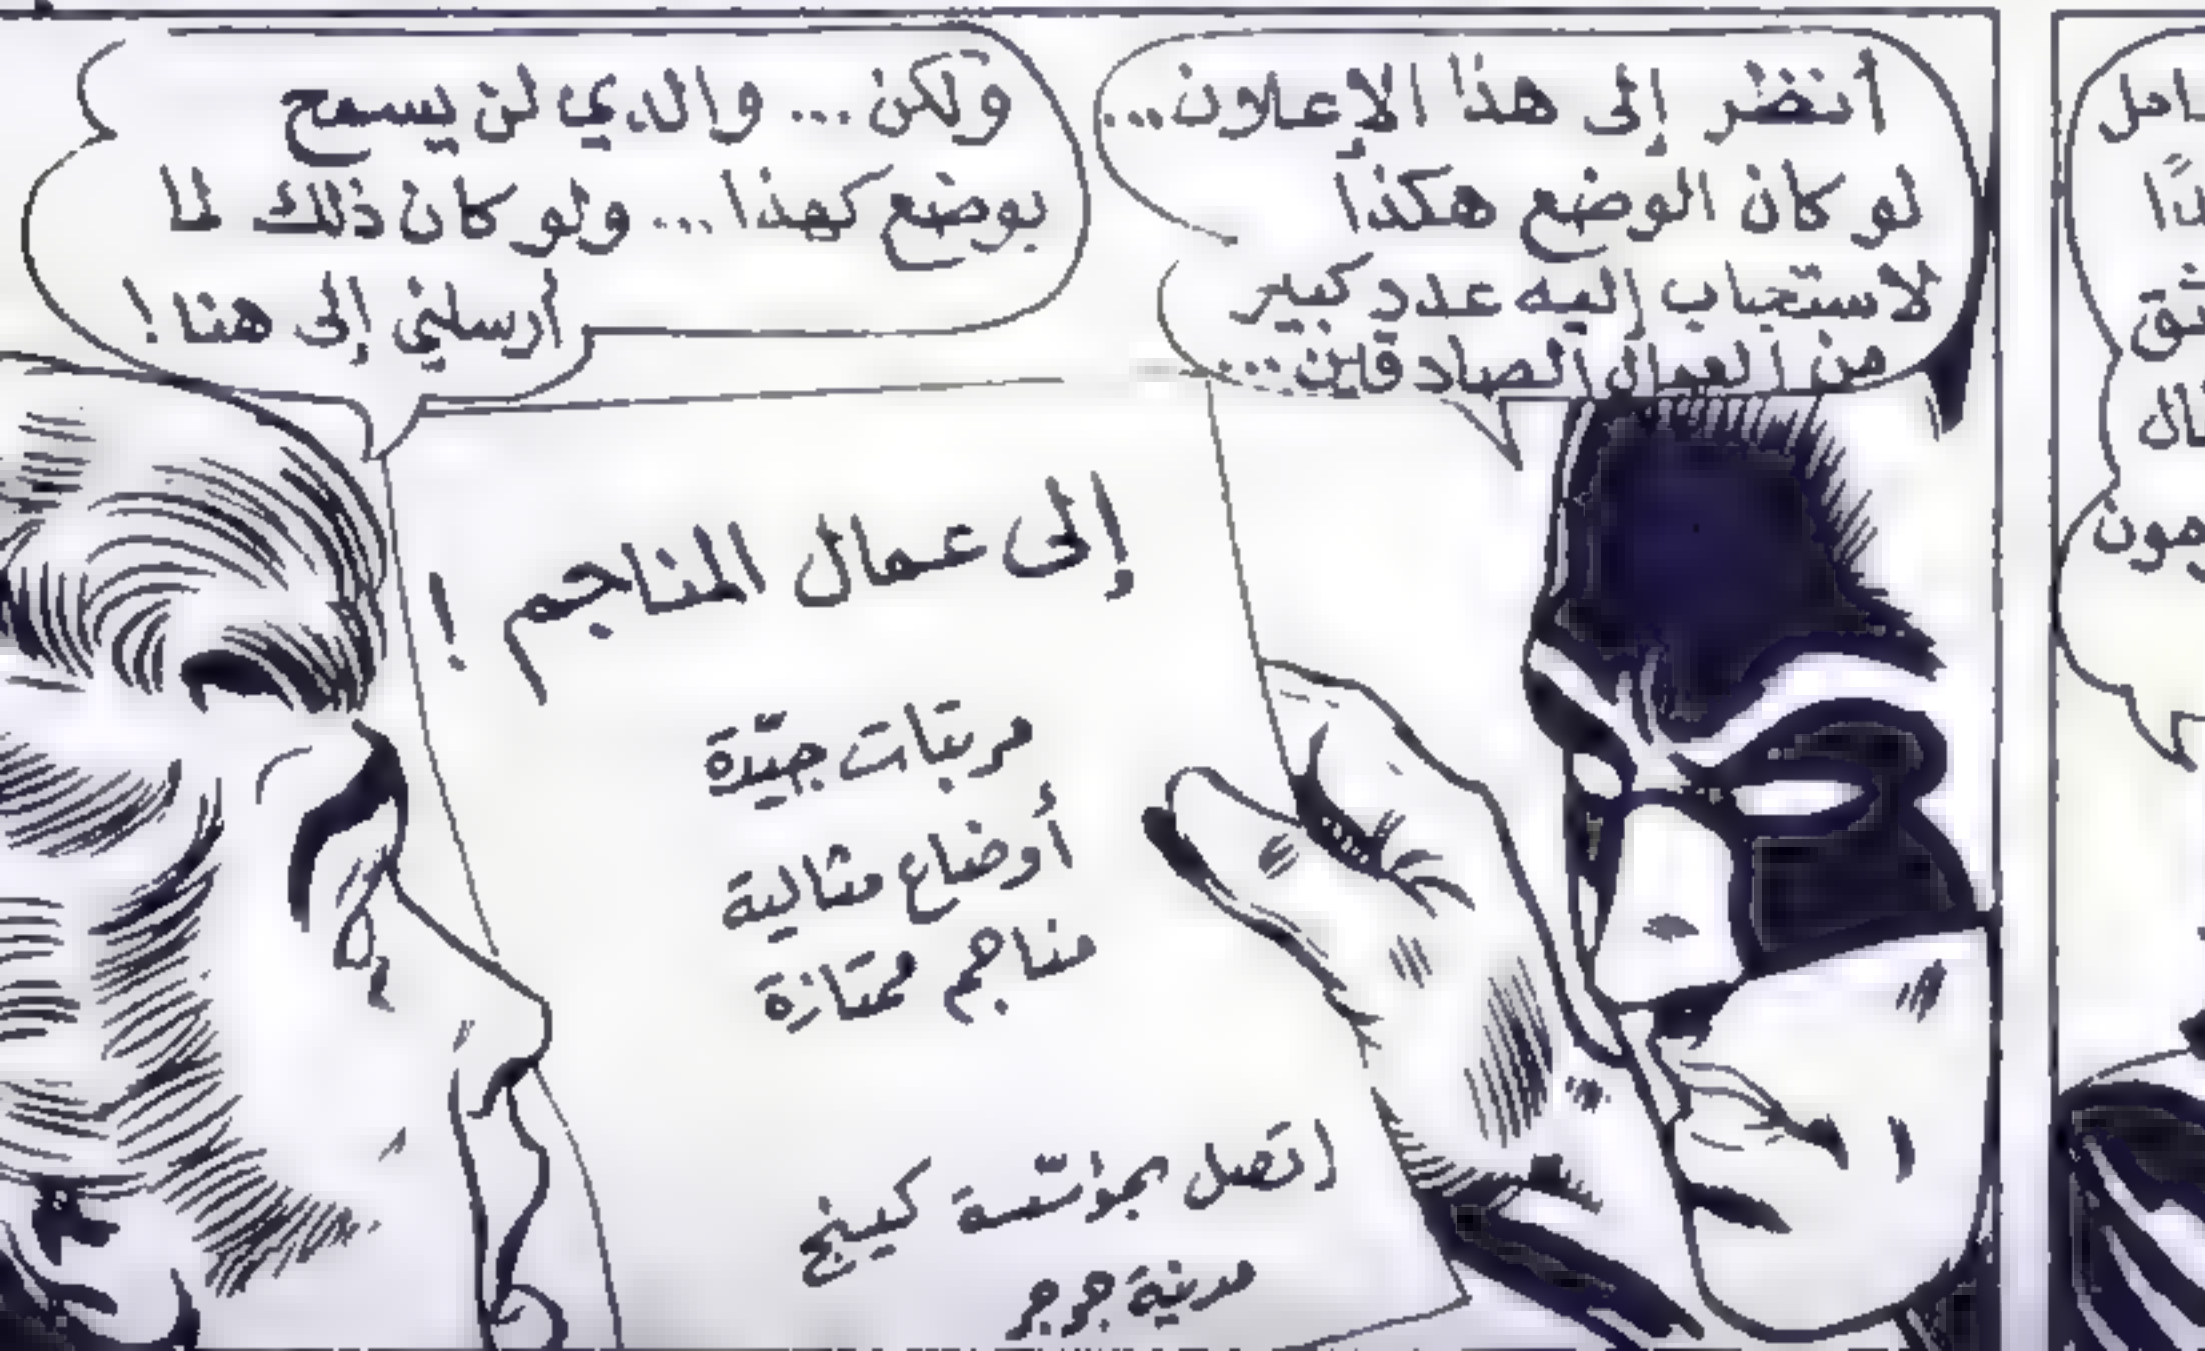 أنظر إلى هذا الإعلان...
لو كان الوضع هكذا
لاستجاب إليه عدد كبير
من العمال الصادقين...
ولكن... والدي لن يسمح
بوضع كهذا... ولو كان ذلك لما
أرسلني إلى هنا!
إلى عمال المناجم!
مرتبات جيّدة
أوضاع مثالية
مناجم ممتازة
اتصل بمؤسّسة كينج
مدينة جرجر